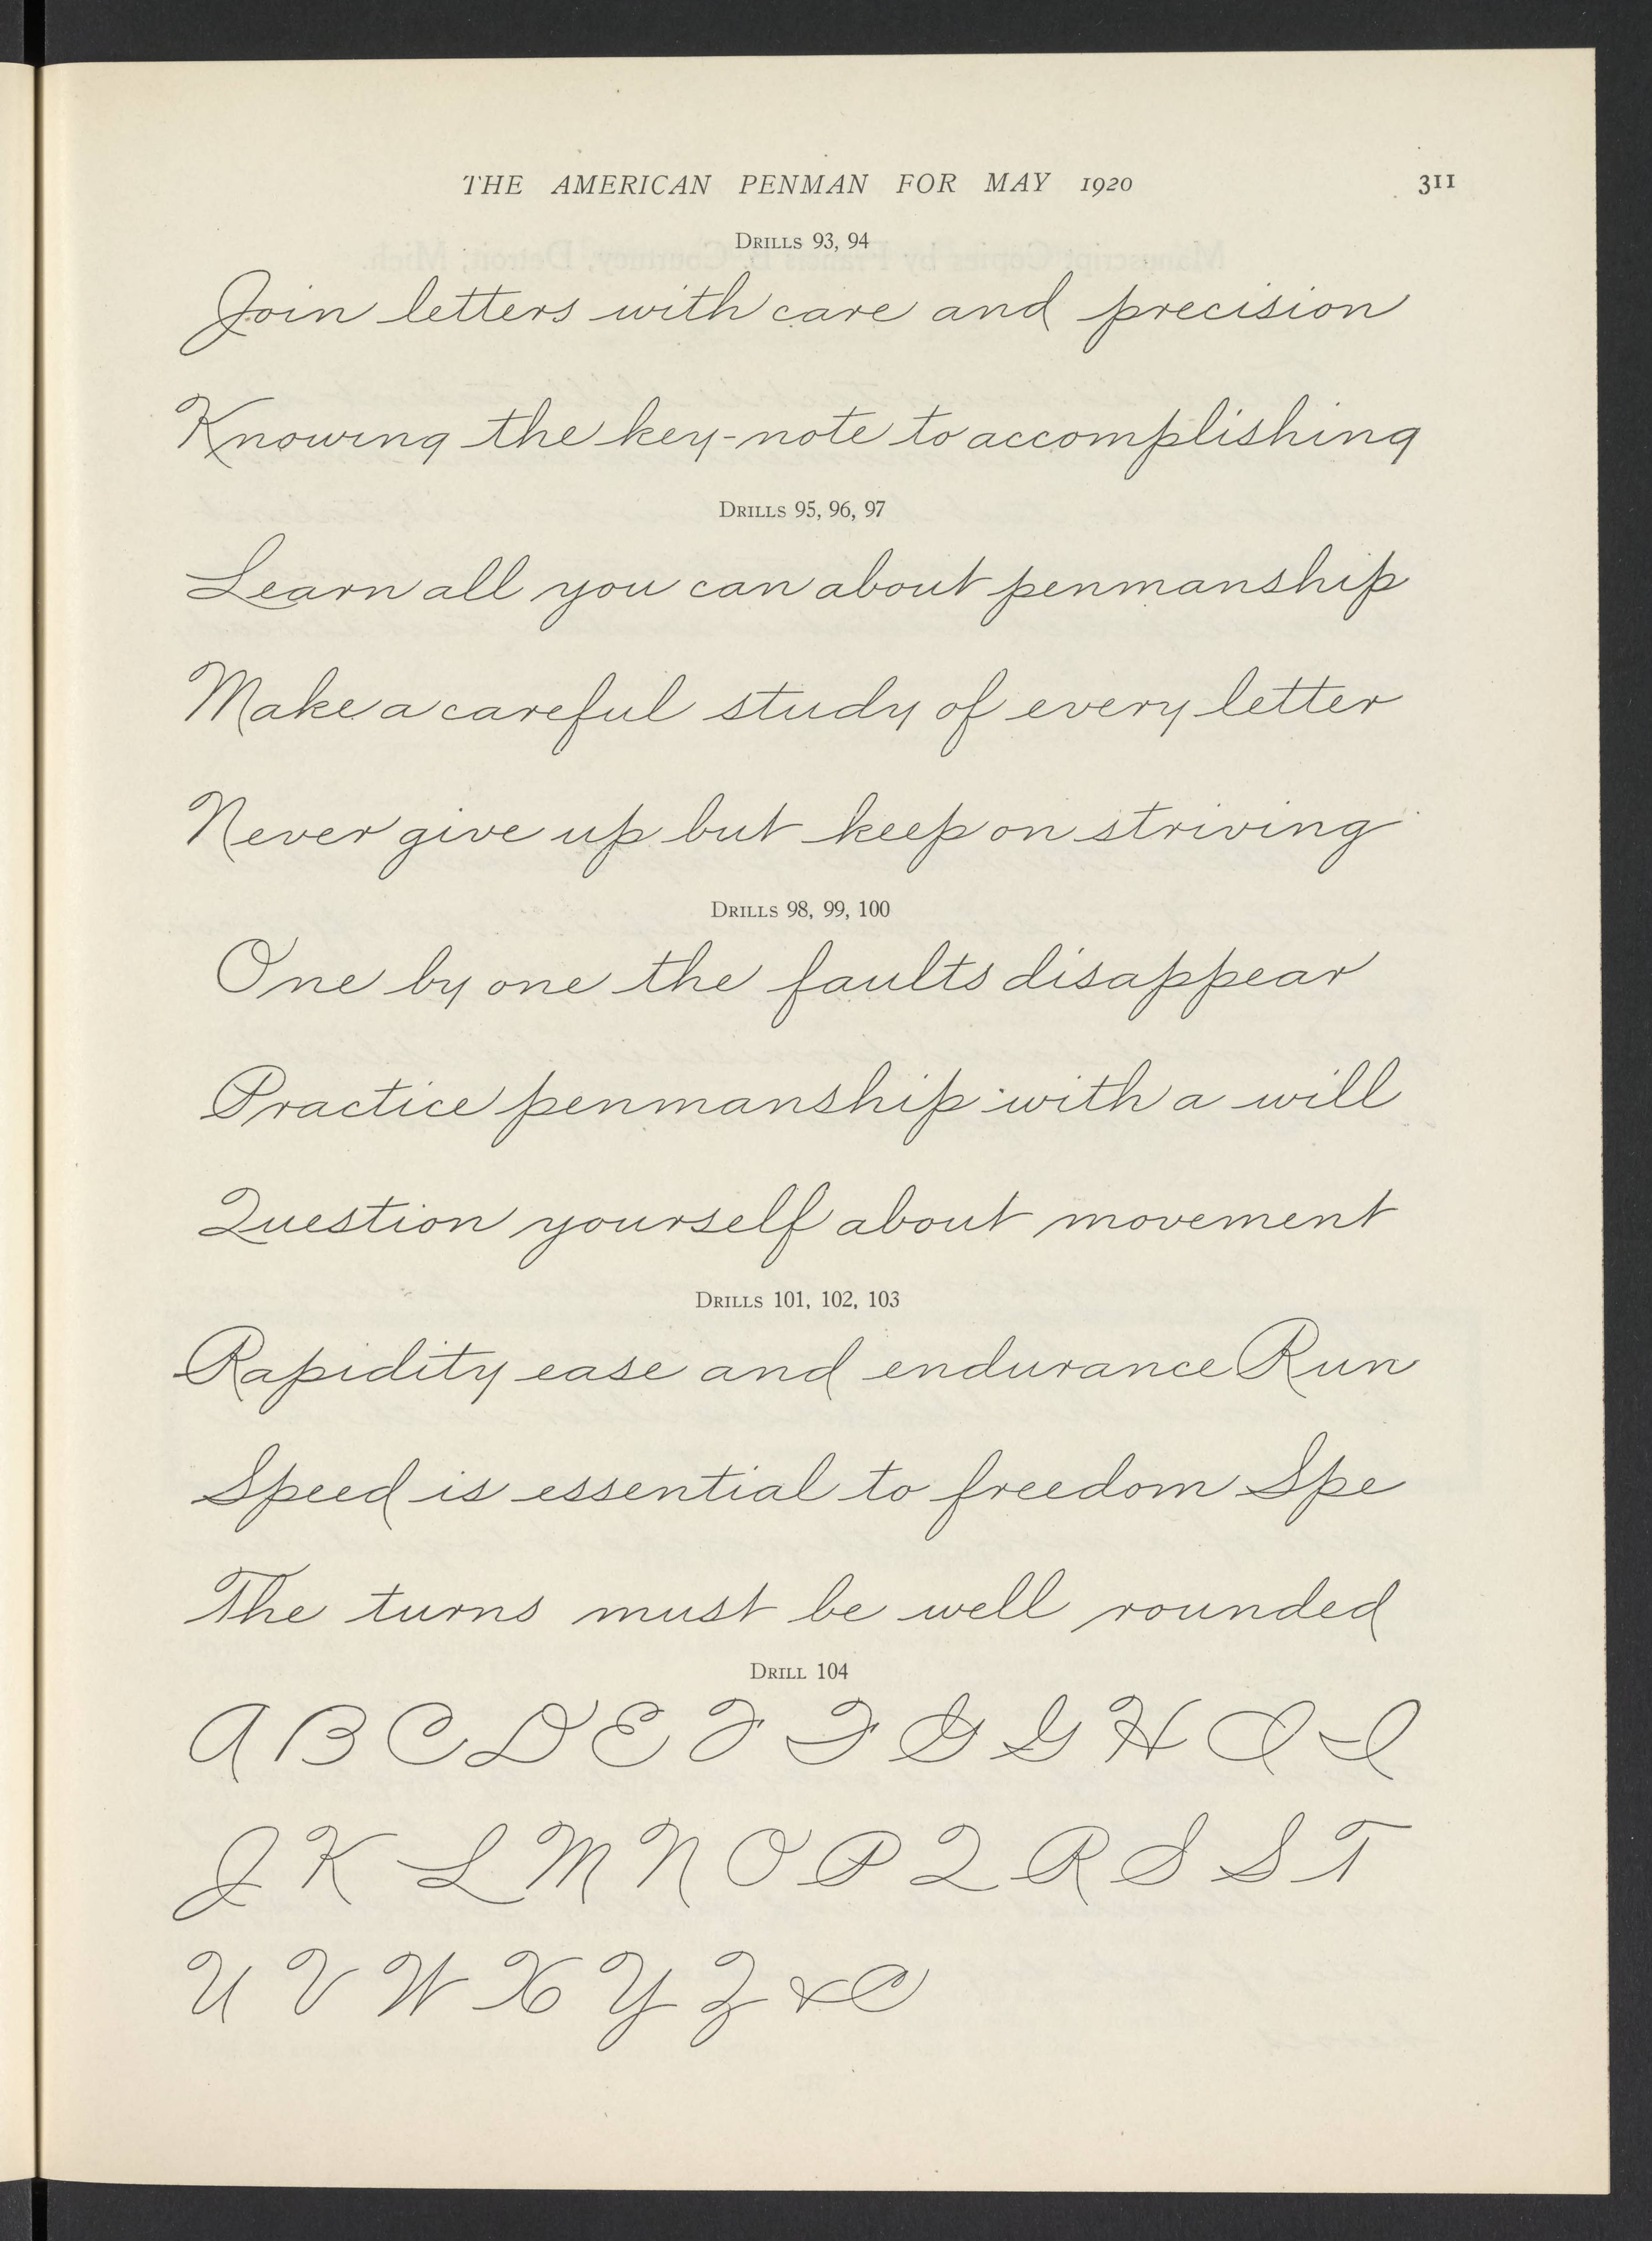 THE AMERICAN PENMAN FOR MAY 1920 311
DRILLS 93, 94
Join letters with care and precision
Knowing the key-note to accomplishing
DRILLS 95, 96, 97
Learn all you can about penmanship
Make a careful study of every letter
Never give up but keep on striving
DRILLS 98, 99, 100
One by one the faults disappear
Practice penmanship with a will
Question yourself about movement
DRILLS 101, 102, 103
Rapidity ease and endurance Run
Speed is essential to freedom Spe
The turns must be well rounded
DRILL 104
A B C D E F F G G H I I
J K L M N O P Q R S S T
U V W X Y Z & C